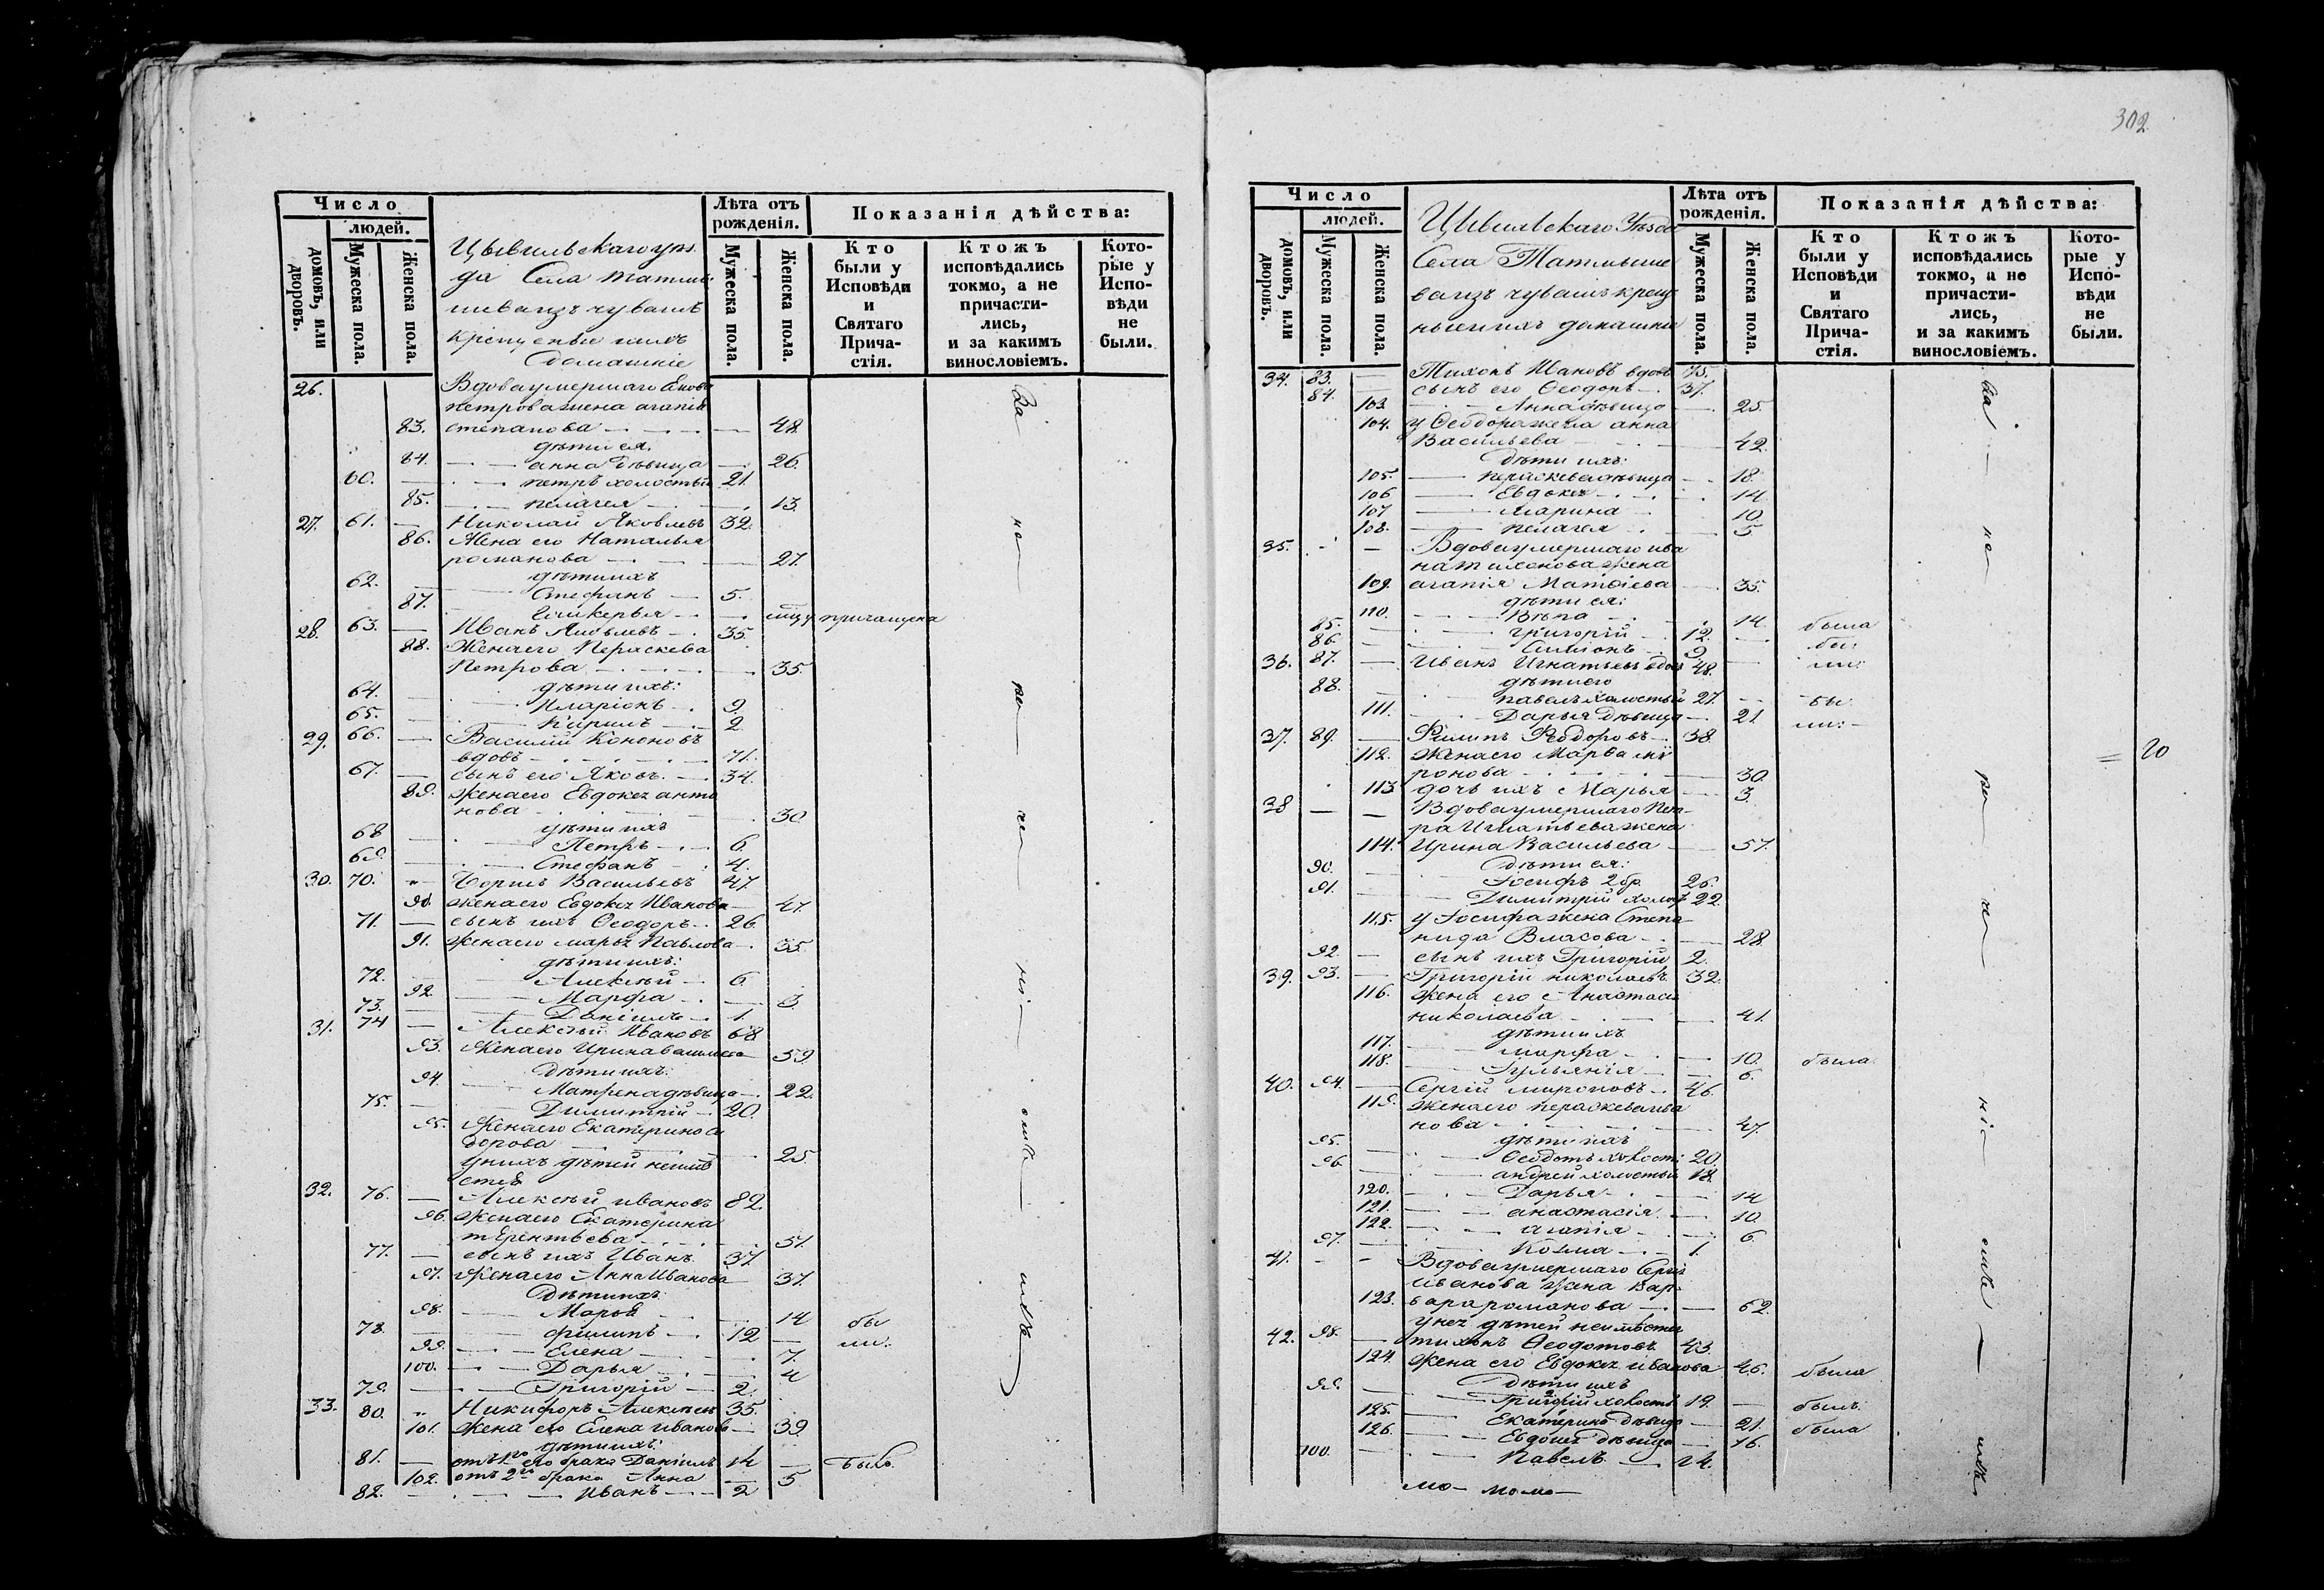 302
Число
людей.
домовъ, или дворовъ.
Мужеска пола.
Женска пола.
Цывильскаго уѣз
да Села
чувашъ
крещеныи ихъ
домашніе
Лѣта отъ рожденія.
Мужеска пола.
Женска пола.
Показанія дѣйства:
Кто были у Исповѣди и Святаго Прича-стія.
Ктожъ исповѣдались токмо, а не причасти-лись, и за какимъ винословіемъ.
Кото-рые у Испо-вѣди не были.
26. Вдова умершаго
петрова жена агапія
83. степанова — 48.
дѣти ея.
84. — анна дѣвица — 26.
60. — петръ холостый 21.
85. — пелагея — 13.
27. 61. — Николай Яковлевъ 32.
86. Жена его Наталья
романова — 27.
дѣти ихъ
62. — Стефанъ — 5.
87. — Гликерья — причащена
28. 63. — Иванъ Яковлевъ — 35.
88. Жена его Параскева
Петрова — 35.
дѣти ихъ:
64. — Иларіонъ — 9.
65. — Кирилъ — 2
29. 66. — Василій Кононовъ
вдовъ — 71.
67. — сынъ его Яковъ — 34.
89. жена его Евдокея анто
нова — 30.
дѣти ихъ
68 — Петръ — 6.
69. — Стефанъ — 4.
30. 70. — Борисъ Васильевъ 47.
90. жена его Евдокея Иванова — 47.
71. — сынъ ихъ Ѳеодоръ — 26.
91. жена его марья Павлова — 35.
дѣти ихъ:
72. — Алексѣй — 6.
92. — Марфа — 3.
73. — Даніилъ — 1.
31. 74 — Алексѣй Ивановъ 68
93. Жена его Ирина — 59.
Дѣти ихъ:
94. — Матрена дѣвица — 22.
75. — Димитрій — 20.
95. Жена его Екатерина Си
дорова — 25.
у нихъ дѣтей неимѣ
ется
32. 76. — Алексѣй ивановъ 82.
96. жена его Екатерина
терентьева — 51.
77. — сынъ ихъ Иванъ 37.
97. Жена его Анна Иванова — 37.
Дѣти ихъ:
98. — Марья — 14 бы
78. — филипъ — 12 — ли.
99. — Елена — 7.
100. — Дарья — 4
79. — Григорій — 2.
33. 80. Никифоръ Алексѣевъ 35.
101. Жена его Елена иванова — 39.
дѣти ихъ:
81. — отъ 1го его брака Даніилъ 14 — былъ.
102. отъ 2го брака Анна — 5
82. — Иванъ — 2
За — но — во — кре — ще — ніемъ
Число
людей.
домовъ, или дворовъ.
Мужеска пола.
Женска пола.
Цивильскаго Уѣзда
Села
чувашъ крещ
ныи ихъ домашніе
Лѣта отъ рожденія.
Мужеска пола.
Женска пола.
Показанія дѣйства:
Кто были у Исповѣди и Святаго Прича-стія.
Ктожъ исповѣдались токмо, а не причасти-лись, и за какимъ винословіемъ.
Кото-рые у Испо-вѣди не были.
34. 83. — Тихонъ Ивановъ вдовъ 75.
84. сынъ его Ѳеодоръ — 37.
103. — Анна дѣвица — 25.
104. у Ѳеодора жена анна
Васильева — 42.
Дѣти ихъ:
105. — параскева дѣвица — 18.
106 — Евдокея — 14.
107 — Марина — 10.
108. — пелагея — 5
35. — Вдова умершаго ива
на тихонова жена
109. агапія Матѳіева — 35.
дѣти ея:
110. — Вѣра — 14. была
85. — Григорій — 12. — бы
86. — Симіонъ — 9
36. 87. — Иванъ Игнатьевъ вдовъ 48. — ли:
дѣти его
88. — павелъ холостый 27. — бы
111. — Дарья дѣвица — 21 ли: —
37. 89. — Филипъ Ѳеодоровъ — 38. = 20
112. Жена его Марва ми
ронова — 30.
113. дочь ихъ Марья — 3.
38 — Вдова умершаго Пет
ра Игнатьева жена
114. Ирина Васильева — 57.
Дѣти ея:
90. — Іосифъ 2 бр. 26.
91. — Димитрій холост 22.
115. у Іосифа жена Степа
нида Власова — 28.
92. — сынъ ихъ Григорій 2.
39. 93. — Григорій николаевъ 32.
116. Жена его Анастасія
николаева — 41.
дѣти ихъ
117. — марфа — 10. была
118. — Іульянія — 6.
40. 94. — Сергій мироновъ — 46.
119. жена его параскева ива
нова — 47.
дѣти ихъ
95. — Ѳеодотъ холост 20.
96. — андрей холостый 18.
120. — Дарья — 14
121. — анастасія — 10.
122. — агапія — 6.
97. — Козма — 1.
41. — Вдова умершаго Сергія
иванова жена Вар
123. вара романова — 62.
у нея дѣтей неимѣется
42. 98. — тихонъ Ѳеодотовъ 43.
124. Жена его Евдокея иванова 46. была
Дѣти ихъ
99. — Григорій холость 19. — былъ.
125. — Екатерина дѣвица — 21. была
126. — Евдокея дѣвица — 16.
100. — Павелъ — 14.